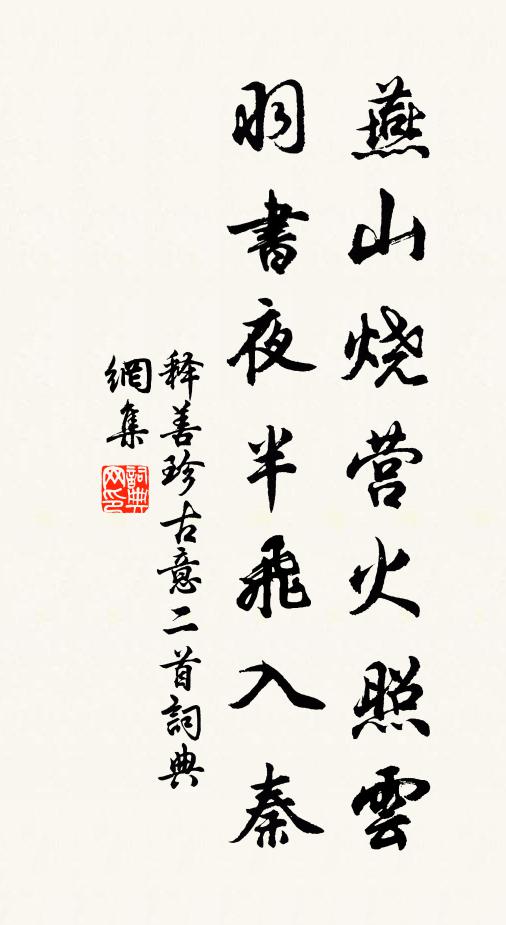 燕山烧营火照雲
羽書夜半飛入秦
释善珍古意二首詞典
網集
詞典
网印